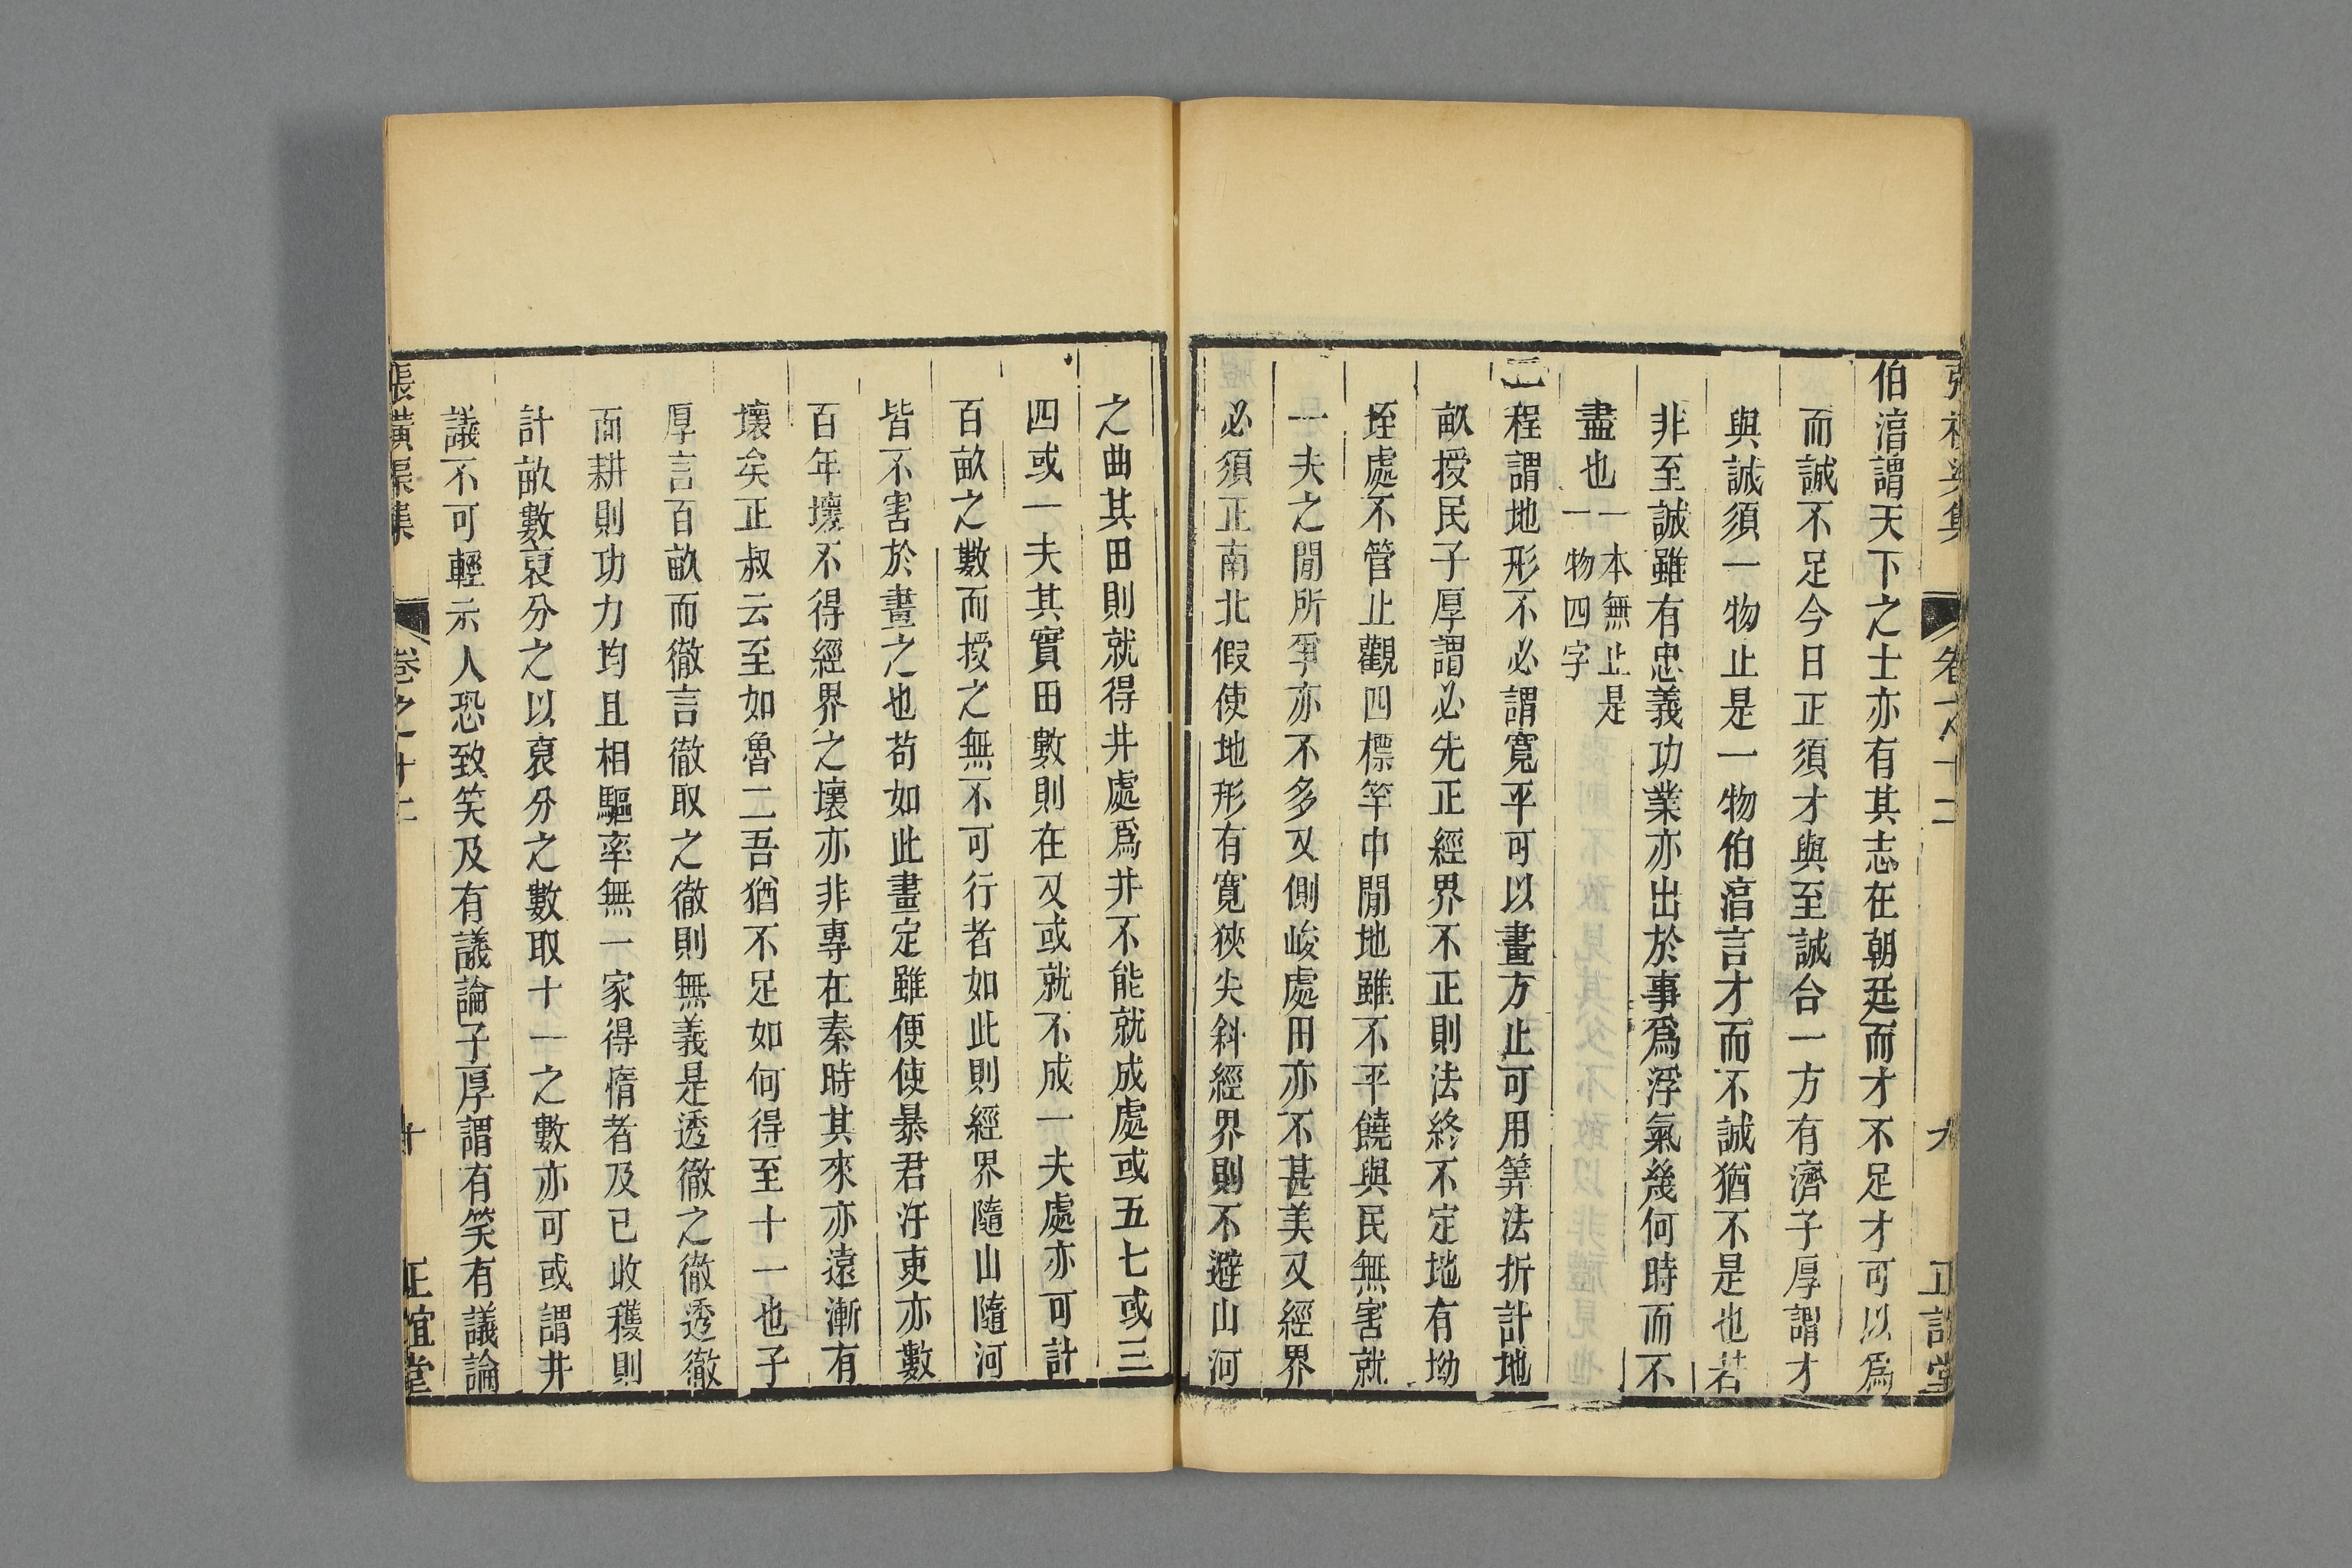 伯淯謂天下之士亦有其志在朝廷而才不足才可以爲
而誠不足今日正須才與至誠合一方有濟子厚謂才
與誠須一物止是一物伯淯言才而不誠猶不是也若
非至誠雖有忠義功業亦出於事爲浮氣幾何時而不
盡也一本無止是
一物四字
二程謂地形不必謂寬平可以畫方止可用筭法折計地
畝授民子厚謂必先正經界不正則法終不定地有坳
垤處不管止觀四標竿中閒地雖不平饒與民無害就
一夫之閒所爭亦不多又側峻處田亦不甚美又經界
必須正南北假使地形有寬狹尖斜經界則不避山河
之曲其田則就得井處爲井不能就成處或五七或三
四或一夫其實田數則在又或就不成一夫處亦可計
百畝之數而授之無不可行者如此則經界隨山隨河
皆不害於畫之也苟如此畫定雖便使暴君汙吏亦數
百年壞不得經界之壞亦非專在秦時其來亦遠漸有
壞矣正叔云至如魯二吾猶不足如何得至十一也子
厚言百畝而徹言徹取之徹則無義是透徹之徹透徹
而耕則功力均且相驅率無一家得惰者及已收穫則
計畝數裒分之以裒分之數取十一之數亦可或謂井
議不可輕示人恐致笑及有議論子厚謂有笑有議論
張橫渠集
卷之十二
十
正誼堂